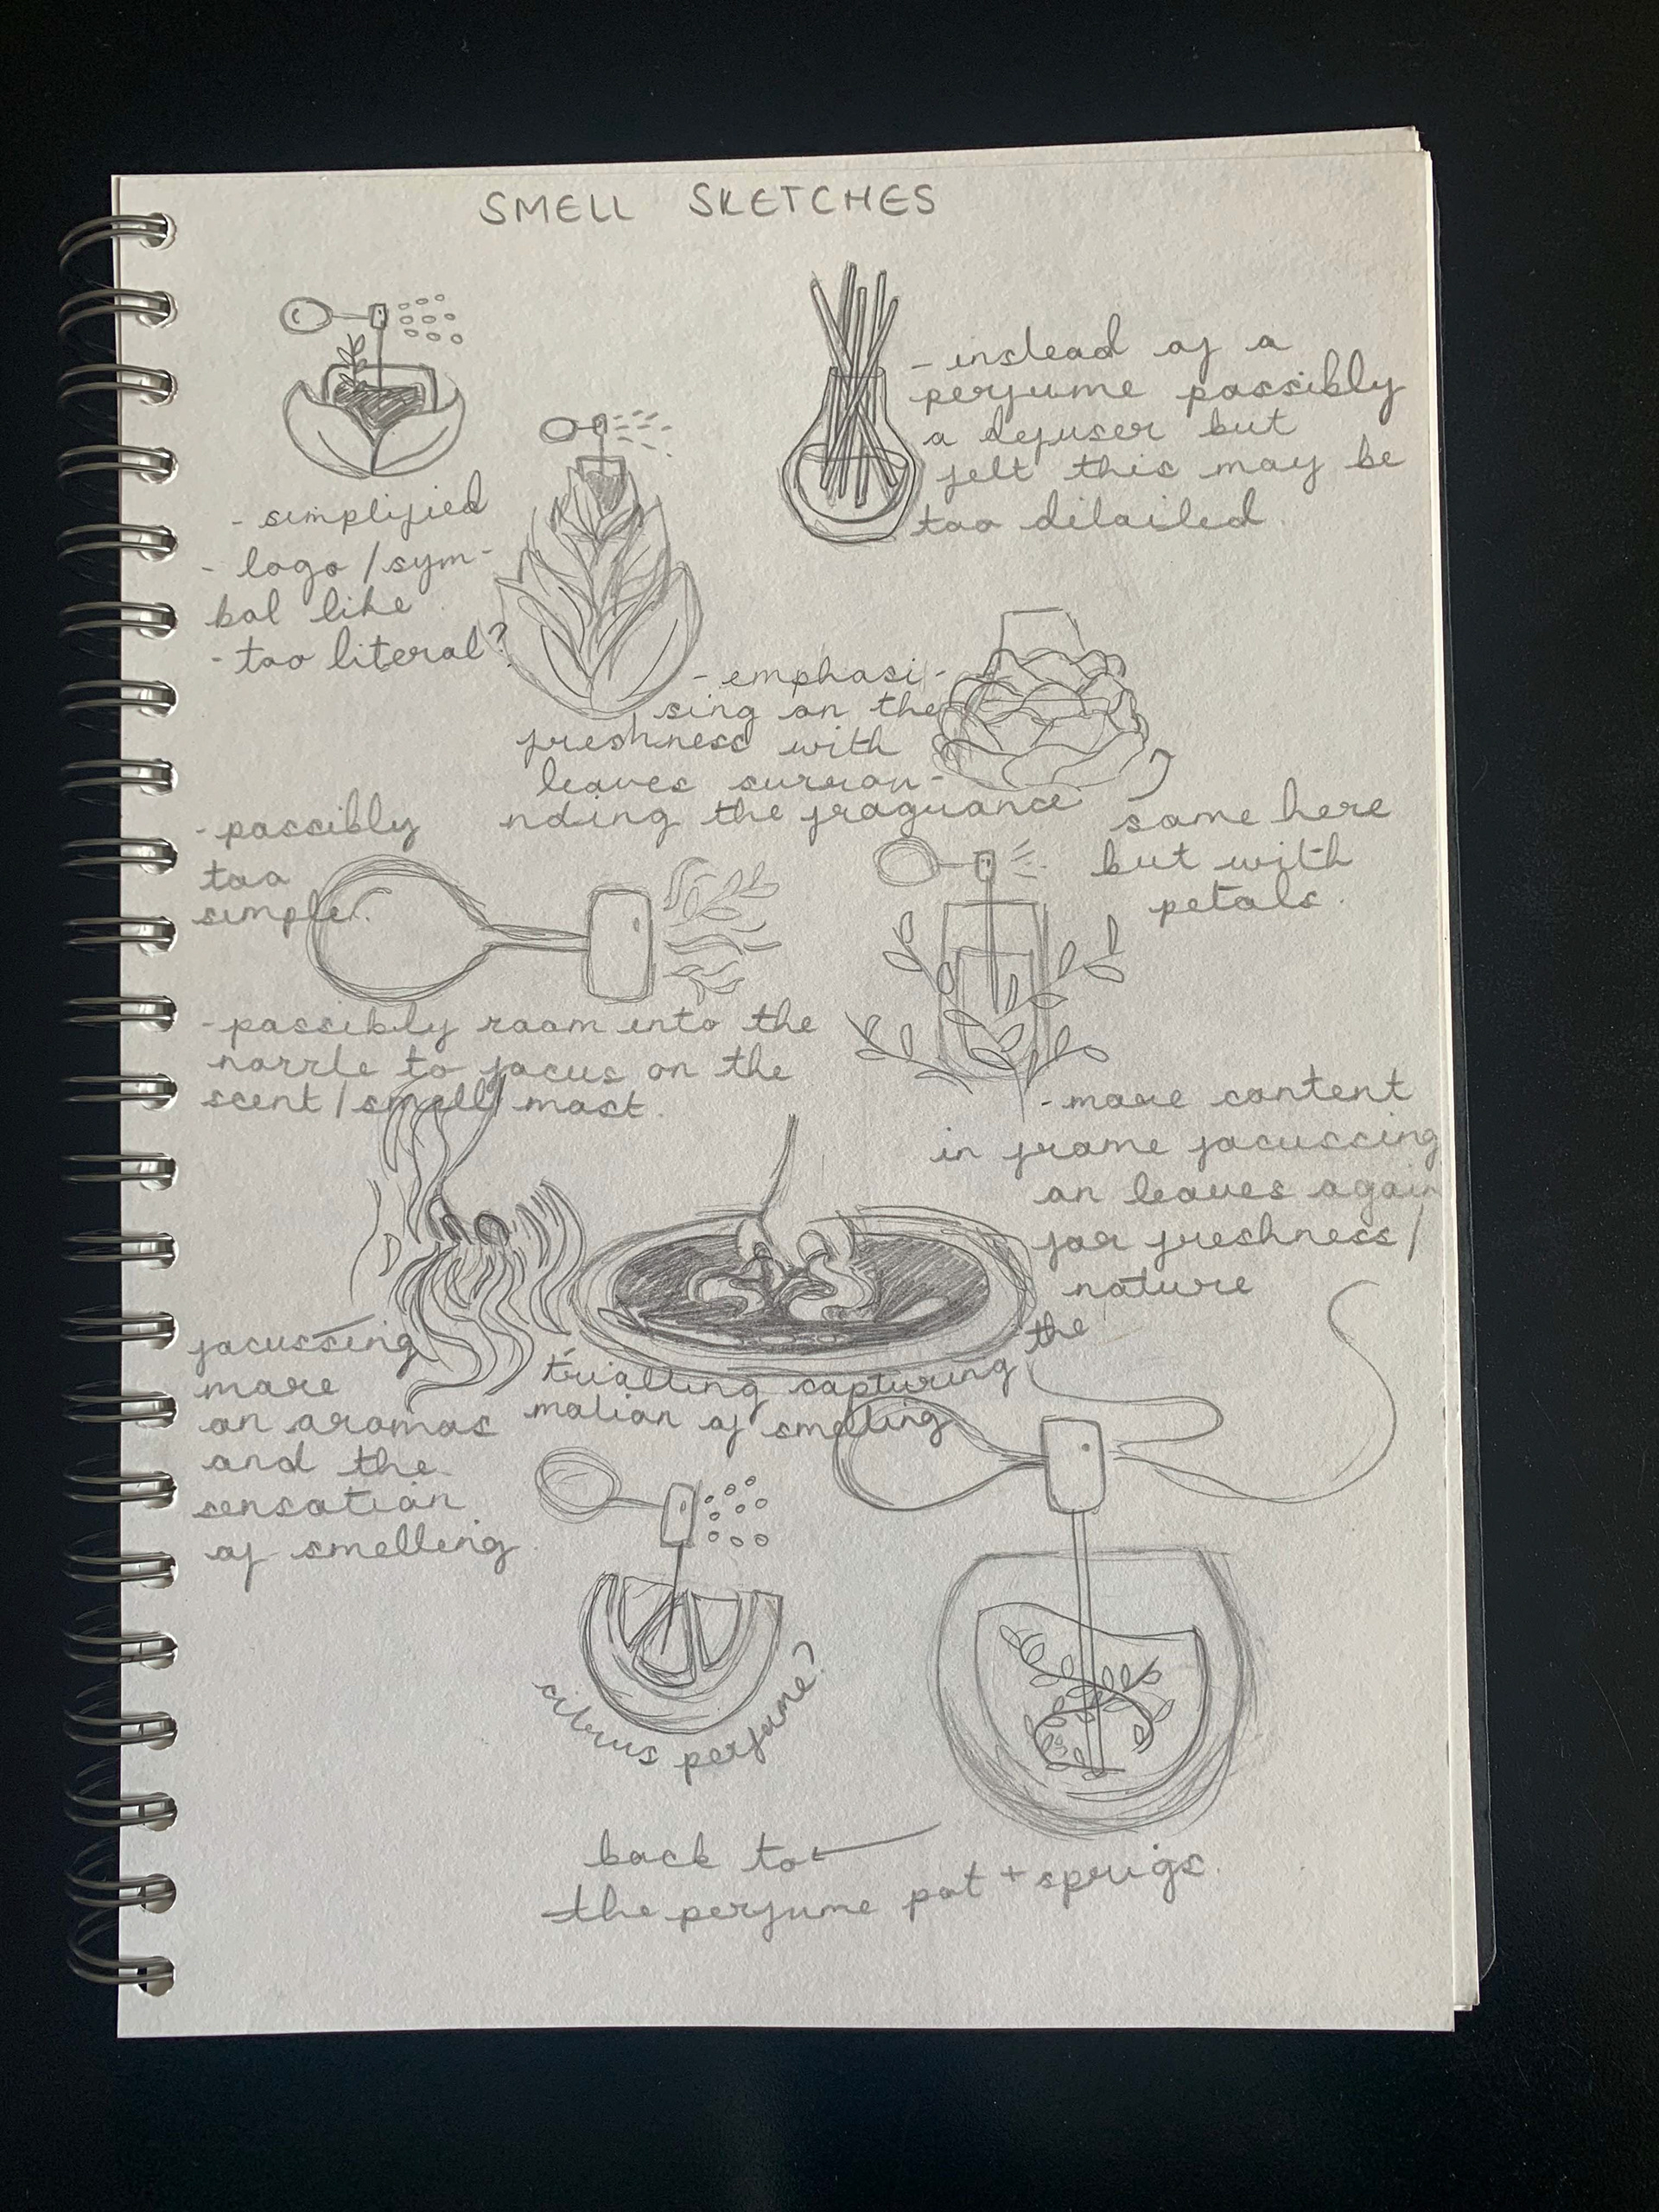 SMELL SKETCHES
- instead of a
perfume possibly
a defuser but
felt this may be
too dilailed
- simplified
- logo / sym-
bol like
- too literal?
- emphasi-
sing on the
freshness with
leaves surrou-
nding the fraguance
same here
but with
petals.
- possibly
too
simple.
- possibly room into the
nozzle to focus on the
scent / smell most.
- more content
in frame focussing
on leaves again
for freshness /
nature
focussing
more
on aromas
and the
sensation
of smelling.
trialling capturing the
motion of smelling
citrus perfume?
back to
the perfume pot + sprigs.